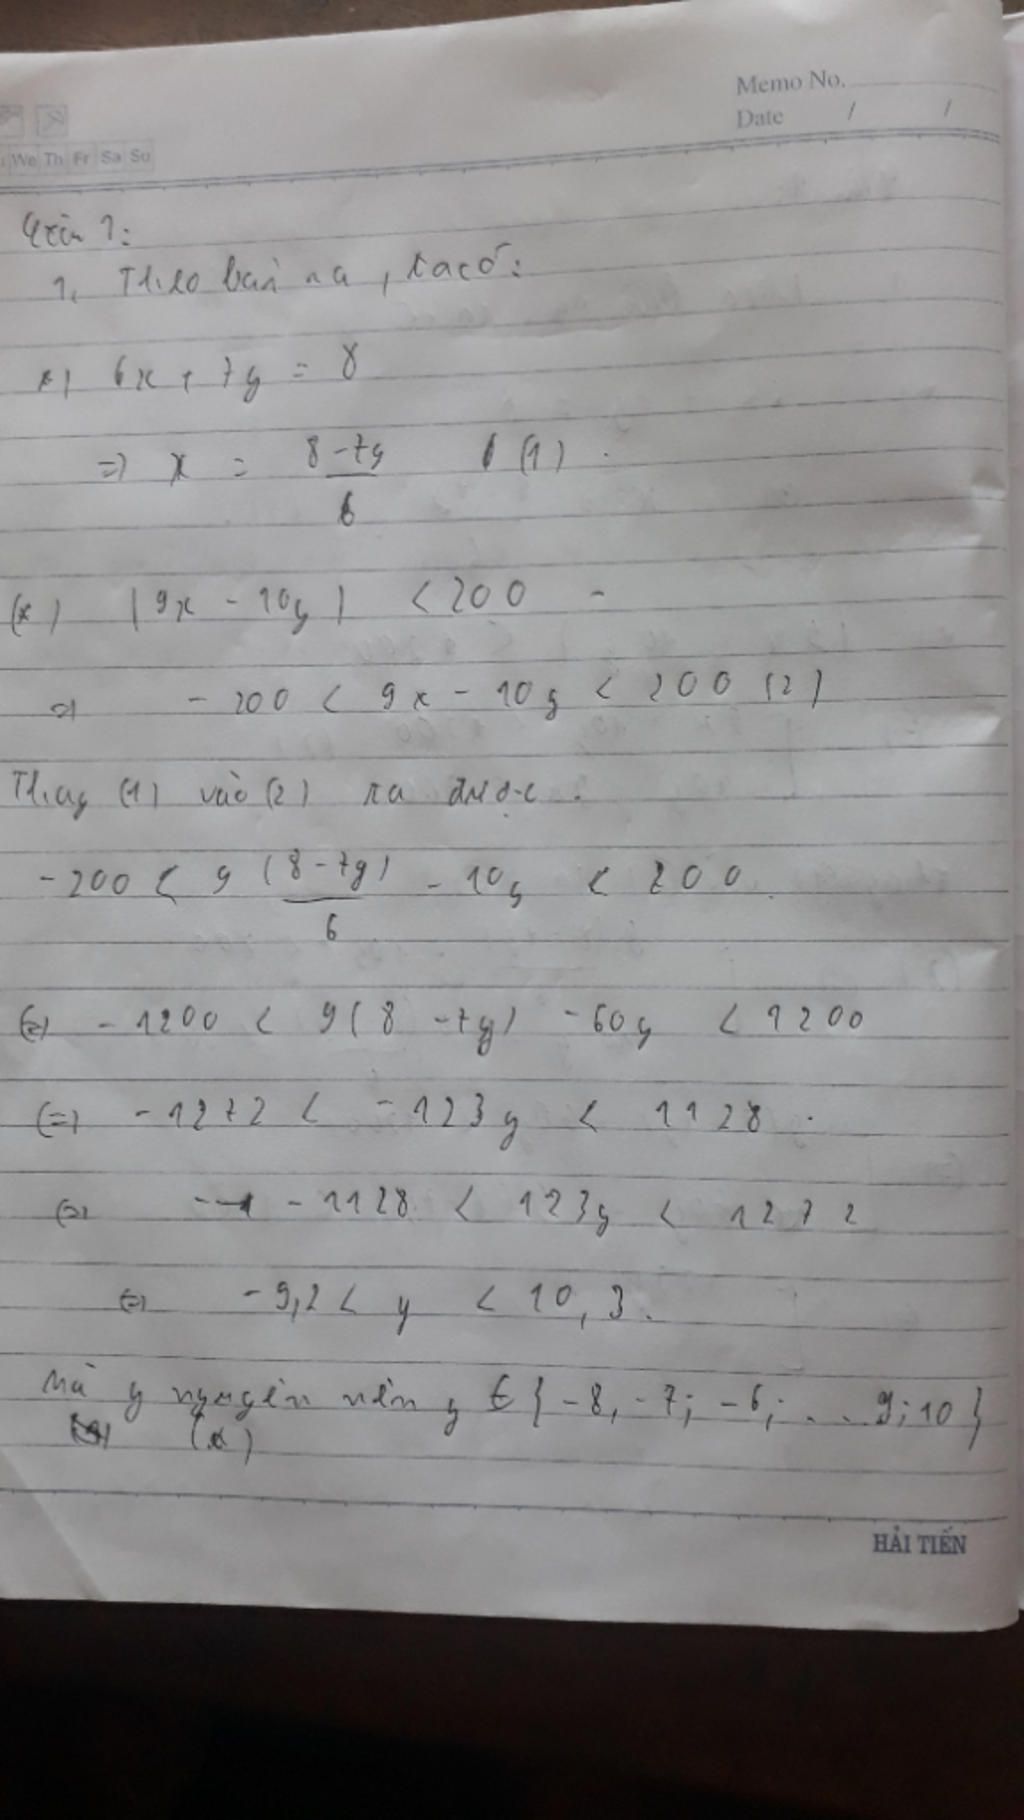 Memo No.
Date / /
We Th Fr Sa Su
Câu 1:
1, Theo bài ra, ta có:
*) 6x + 7y = 8
=> x = 8-7y / 6 (1)
(*) |9x - 10y| < 200
=> -200 < 9x - 10y < 200 (2)
Thay (1) vào (2) ta được:
-200 < 9(8-7y) / 6 - 10y < 200
(=) -1200 < 9(8 - 7y) - 60y < 1200
(=) -1272 < -123y < 1128
(=) -1128 < 123y < 1272
(=) -9,2 < y < 10,3.
mà y nguyên nên y ∈ {-8, -7; -6; ... 9; 10}
(*)
HẢI TIẾN